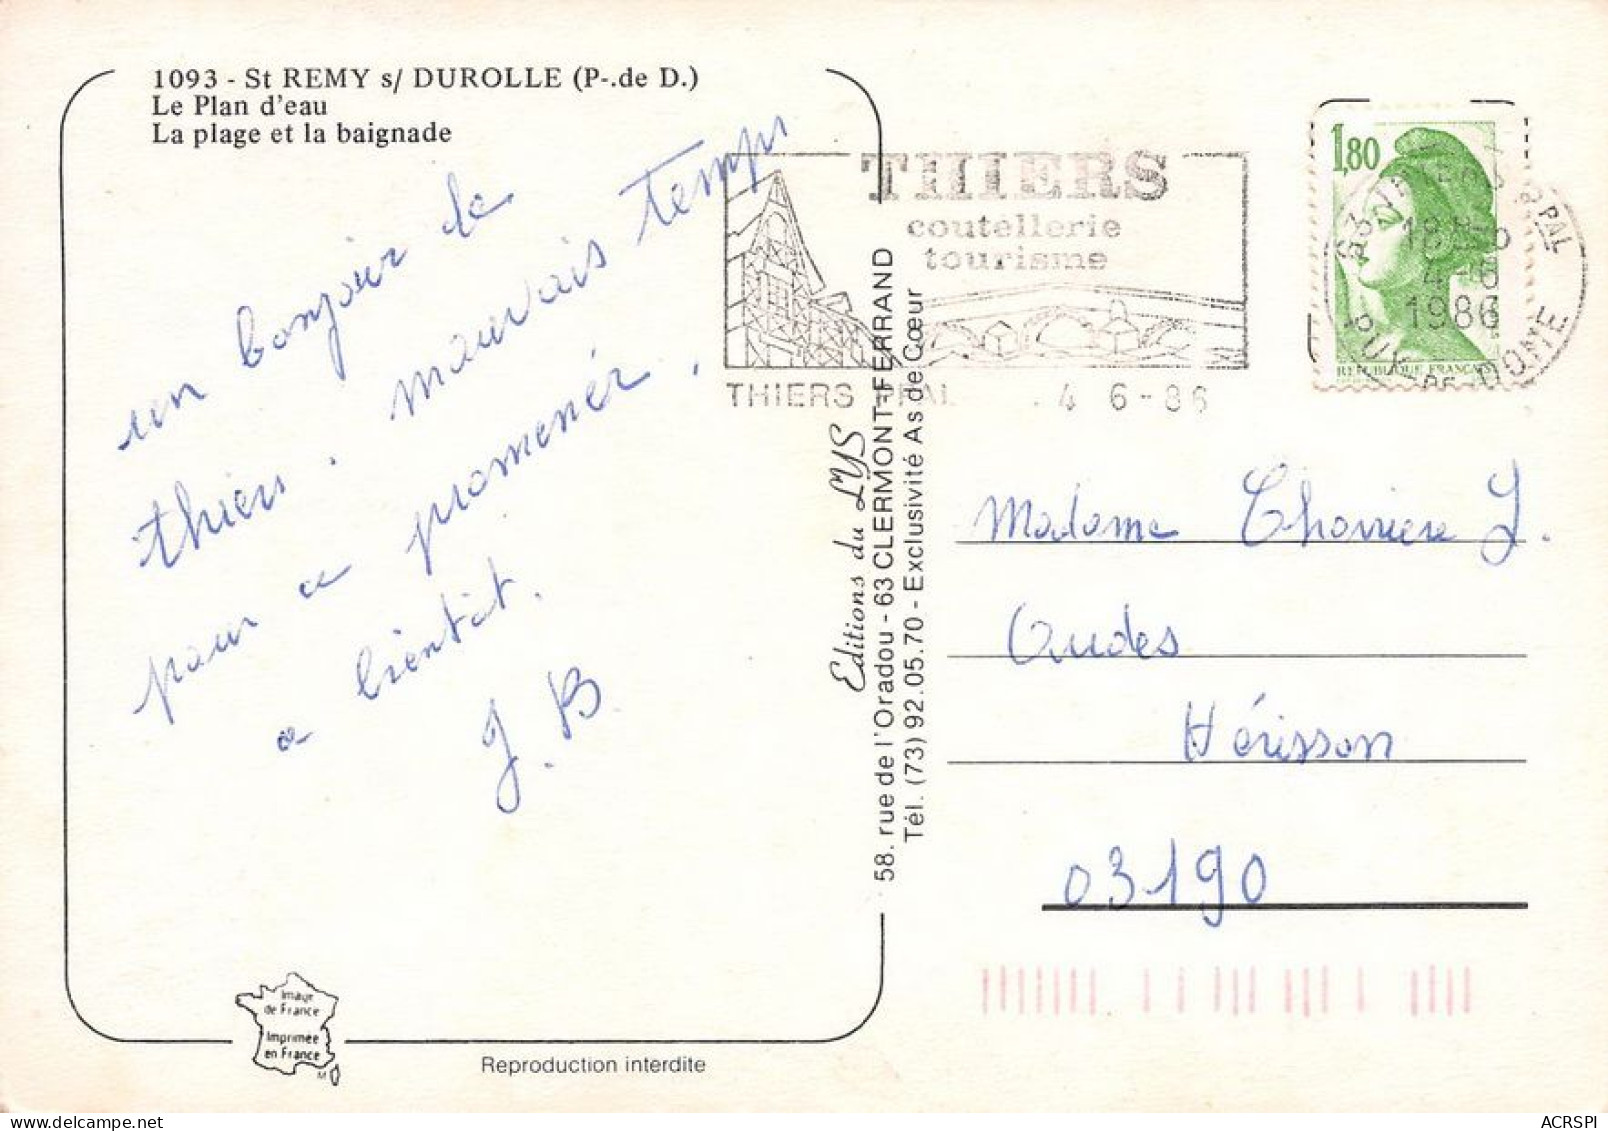 1093 - St REMY s/ DUROLLE (P-.de D.)
Le Plan d'eau
La plage et la baignade
un bonjour de
thiers. mauvais temps
pour a promenér,
a bientôt.
J.B
Editions du LYS
58. rue de l'Oradou - 63 CLERMONT-FERRAND
Tél. (73) 92.05.70 - Exclusivité As de Cœur
THIERS
coutellerie
tourisme
THIERS PPAL 4 6-86
1,80
REPUBLIQUE FRANÇAISE
18H
4-6
1986
PUY DE DOME
Madame Charriere J.
Audes
Hérisson
03190
Image
de France
Imprimée
en France
Reproduction interdite
ACRSPI